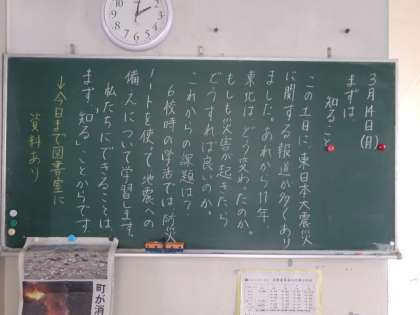 3月14日(月)
まずは
知ること
この土日に、東日本大震災
に関する報道が多くあり
ました。あれから11年、
東北はどう変わったのか。
もしも災害が起きたら
どうすれば良いのか。
これからの課題は？
6校時の学活では防災
ノートを使って地震への
備えについて学習します。
私たちにできることは
まず、「知る」ことからです。
↓今日まで図書室に
資料あり
町が消